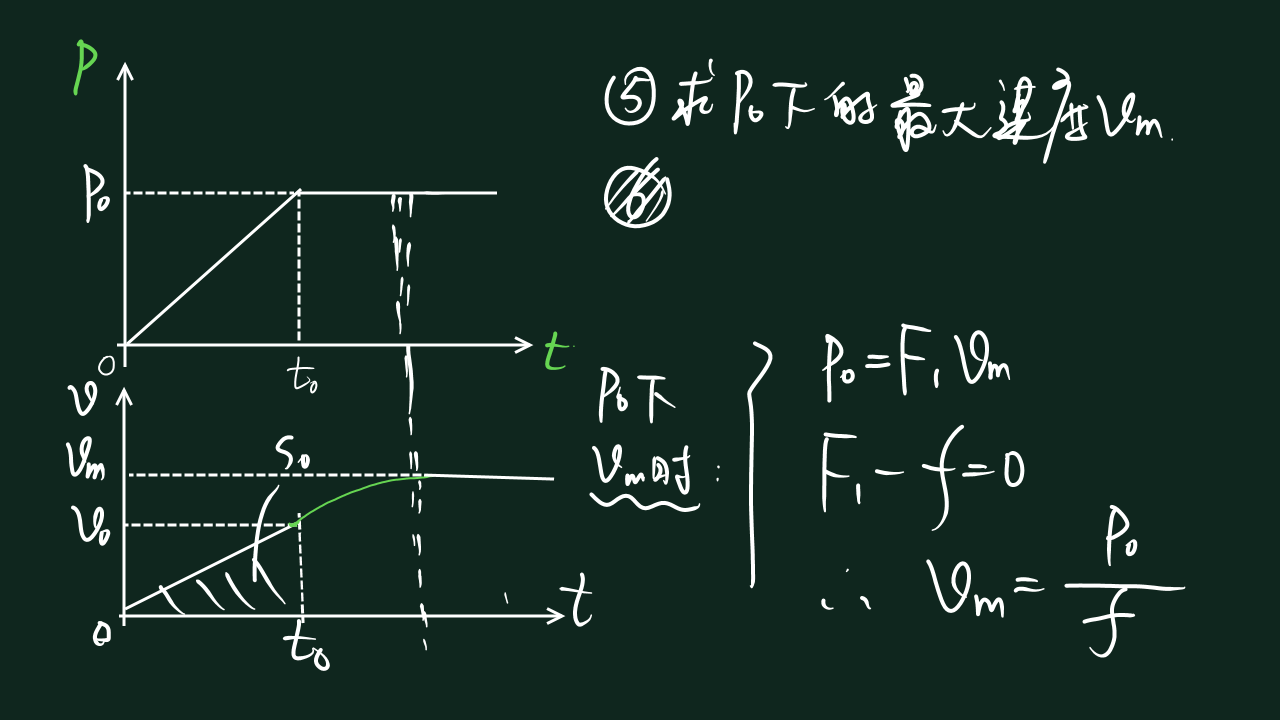 P
P₀
0
t₀
t
v
vₘ
v₀
S₀
0
t₀
t
⑤求P₀下的最大速度vₘ.
P₀下
vₘ时:
P₀=F₁vₘ
F₁-f=0
∴ vₘ=P₀/f